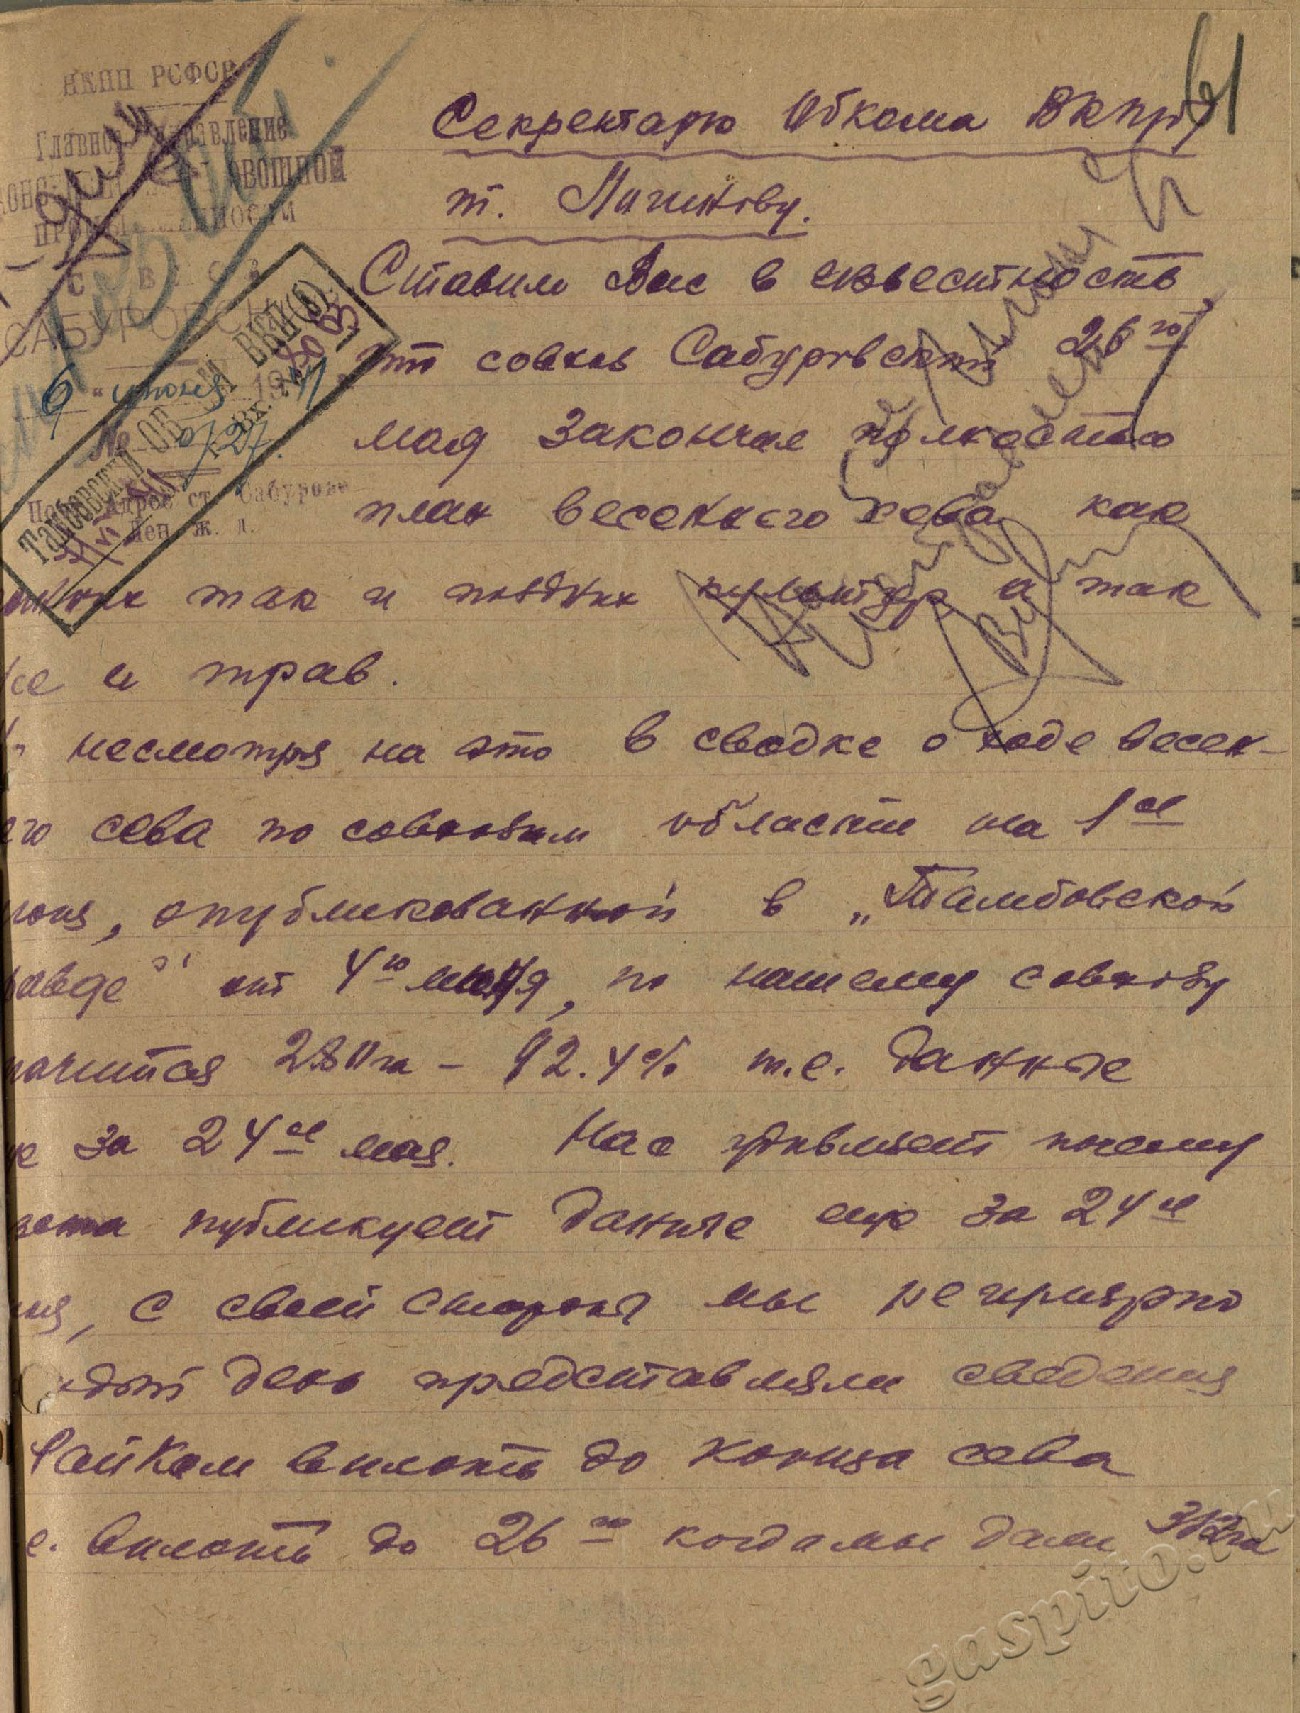 61
НКПП РСФСР
Главное управление
консервной и овощной
промышленности
СОВХОЗ
САБУРОВСКИЙ
"6" июня 1941
№ 0/27.
Почт. адрес ст. Сабурово
Лен. ж. д.
Тамбовский ОБКОМ ВКП(б)
Вх. №
Секретарю Обкома ВКП(б)
т. Логинову.
Ставим Вас в известность,
что совхоз Сабуровский 26го
мая закончил полностью
план весеннего сева как
ранних так и поздних культур а так
же и трав.
Но несмотря на это в сводке о ходе весен-
его сева по совхозам области на 1ое
июня, опубликованной в „Тамбовской
правде" от 4го июня, по нашему совхозу
значится 280 га – 92.4% т.е. данные
за 24ое мая. Нас удивляет почему
газета публикует данные еще за 24ое
мая, с своей стороны мы регулярно
каждый день представляли сведения
Райком вплоть до конца сева
е. вплоть до 26го когда мы дали 312 га
gaspito.ru